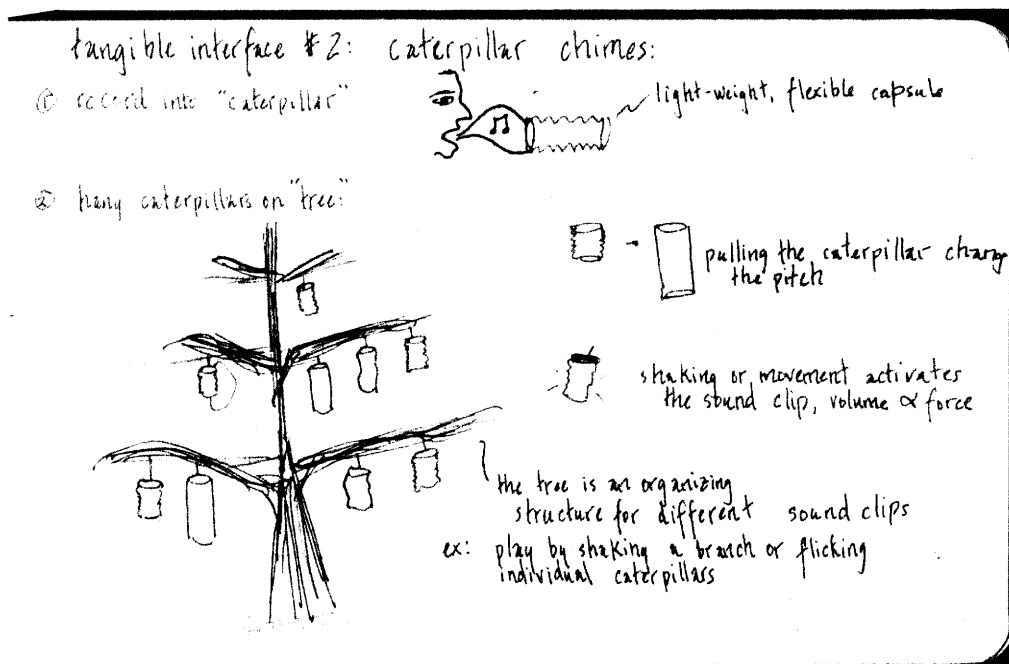 tangible interface #2: caterpillar chimes:
① record into "caterpillar"
light-weight, flexible capsule
② hang caterpillars on "tree:"
pulling the caterpillar change
the pitch
shaking or movement activates
the sound clip, volume ∝ force
the tree is an organizing
structure for different sound clips
ex: play by shaking a branch or flicking
individual caterpillars